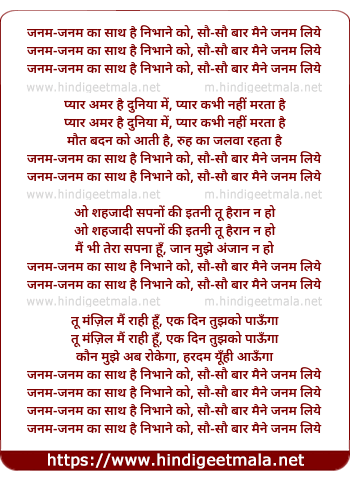 जनम-जनम का साथ है निभाने को, सौ-सौ बार मैने जनम लिये
जनम-जनम का साथ है निभाने को, सौ-सौ बार मैने जनम लिये
जनम-जनम का साथ है निभाने को, सौ-सौ बार मैने जनम लिये
www.hindigeetmala.net m.hindigeetmala.net
प्यार अमर है दुनिया में, प्यार कभी नहीं मरता है
प्यार अमर है दुनिया में, प्यार कभी नहीं मरता है
मौत बदन को आती है, रुह का जलवा रहता है
जनम-जनम का साथ है निभाने को, सौ-सौ बार मैने जनम लिये
जनम-जनम का साथ है निभाने को, सौ-सौ बार मैने जनम लिये
www.hindigeetmala.net m.hindigeetmala.net
ओ शहजादी सपनों की इतनी तू हैरान न हो
ओ शहजादी सपनों की इतनी तू हैरान न हो
मैं भी तेरा सपना हूँ, जान मुझे अंजान न हो
जनम-जनम का साथ है निभाने को, सौ-सौ बार मैने जनम लिये
जनम-जनम का साथ है निभाने को, सौ-सौ बार मैने जनम लिये
www.hindigeetmala.net m.hindigeetmala.net
तू मंज़िल मैं राही हूँ, एक दिन तुझको पाऊँगा
तू मंज़िल मैं राही हूँ, एक दिन तुझको पाऊँगा
कौन मुझे अब रोकेगा, हरदम यूँही आऊँगा
जनम-जनम का साथ है निभाने को, सौ-सौ बार मैने जनम लिये
जनम-जनम का साथ है निभाने को, सौ-सौ बार मैने जनम लिये
जनम-जनम का साथ है निभाने को, सौ-सौ बार मैने जनम लिये
जनम-जनम का साथ है निभाने को, सौ-सौ बार मैने जनम लिये
https://www.hindigeetmala.net